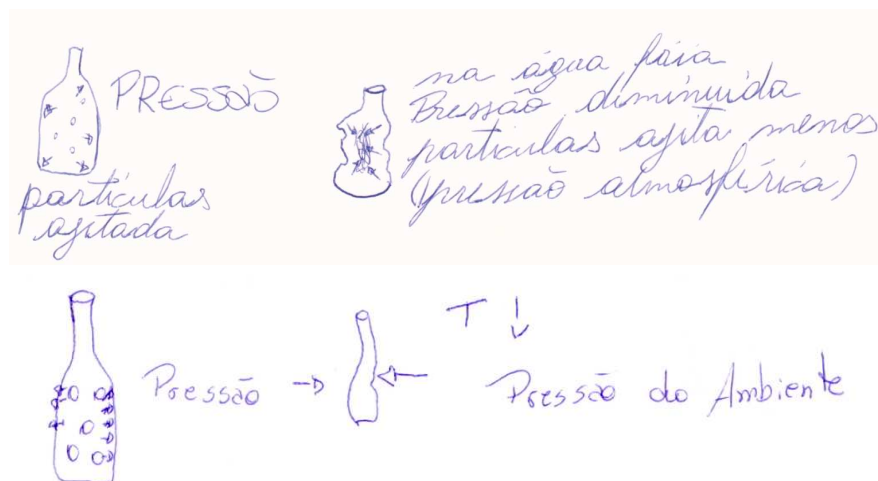 PRESSÃO
partículas
agitada
na água fria
Pressão diminuida
particulas agita menos
(pressão atmosférica)
Pressão
T ↓
Pressão do Ambiente